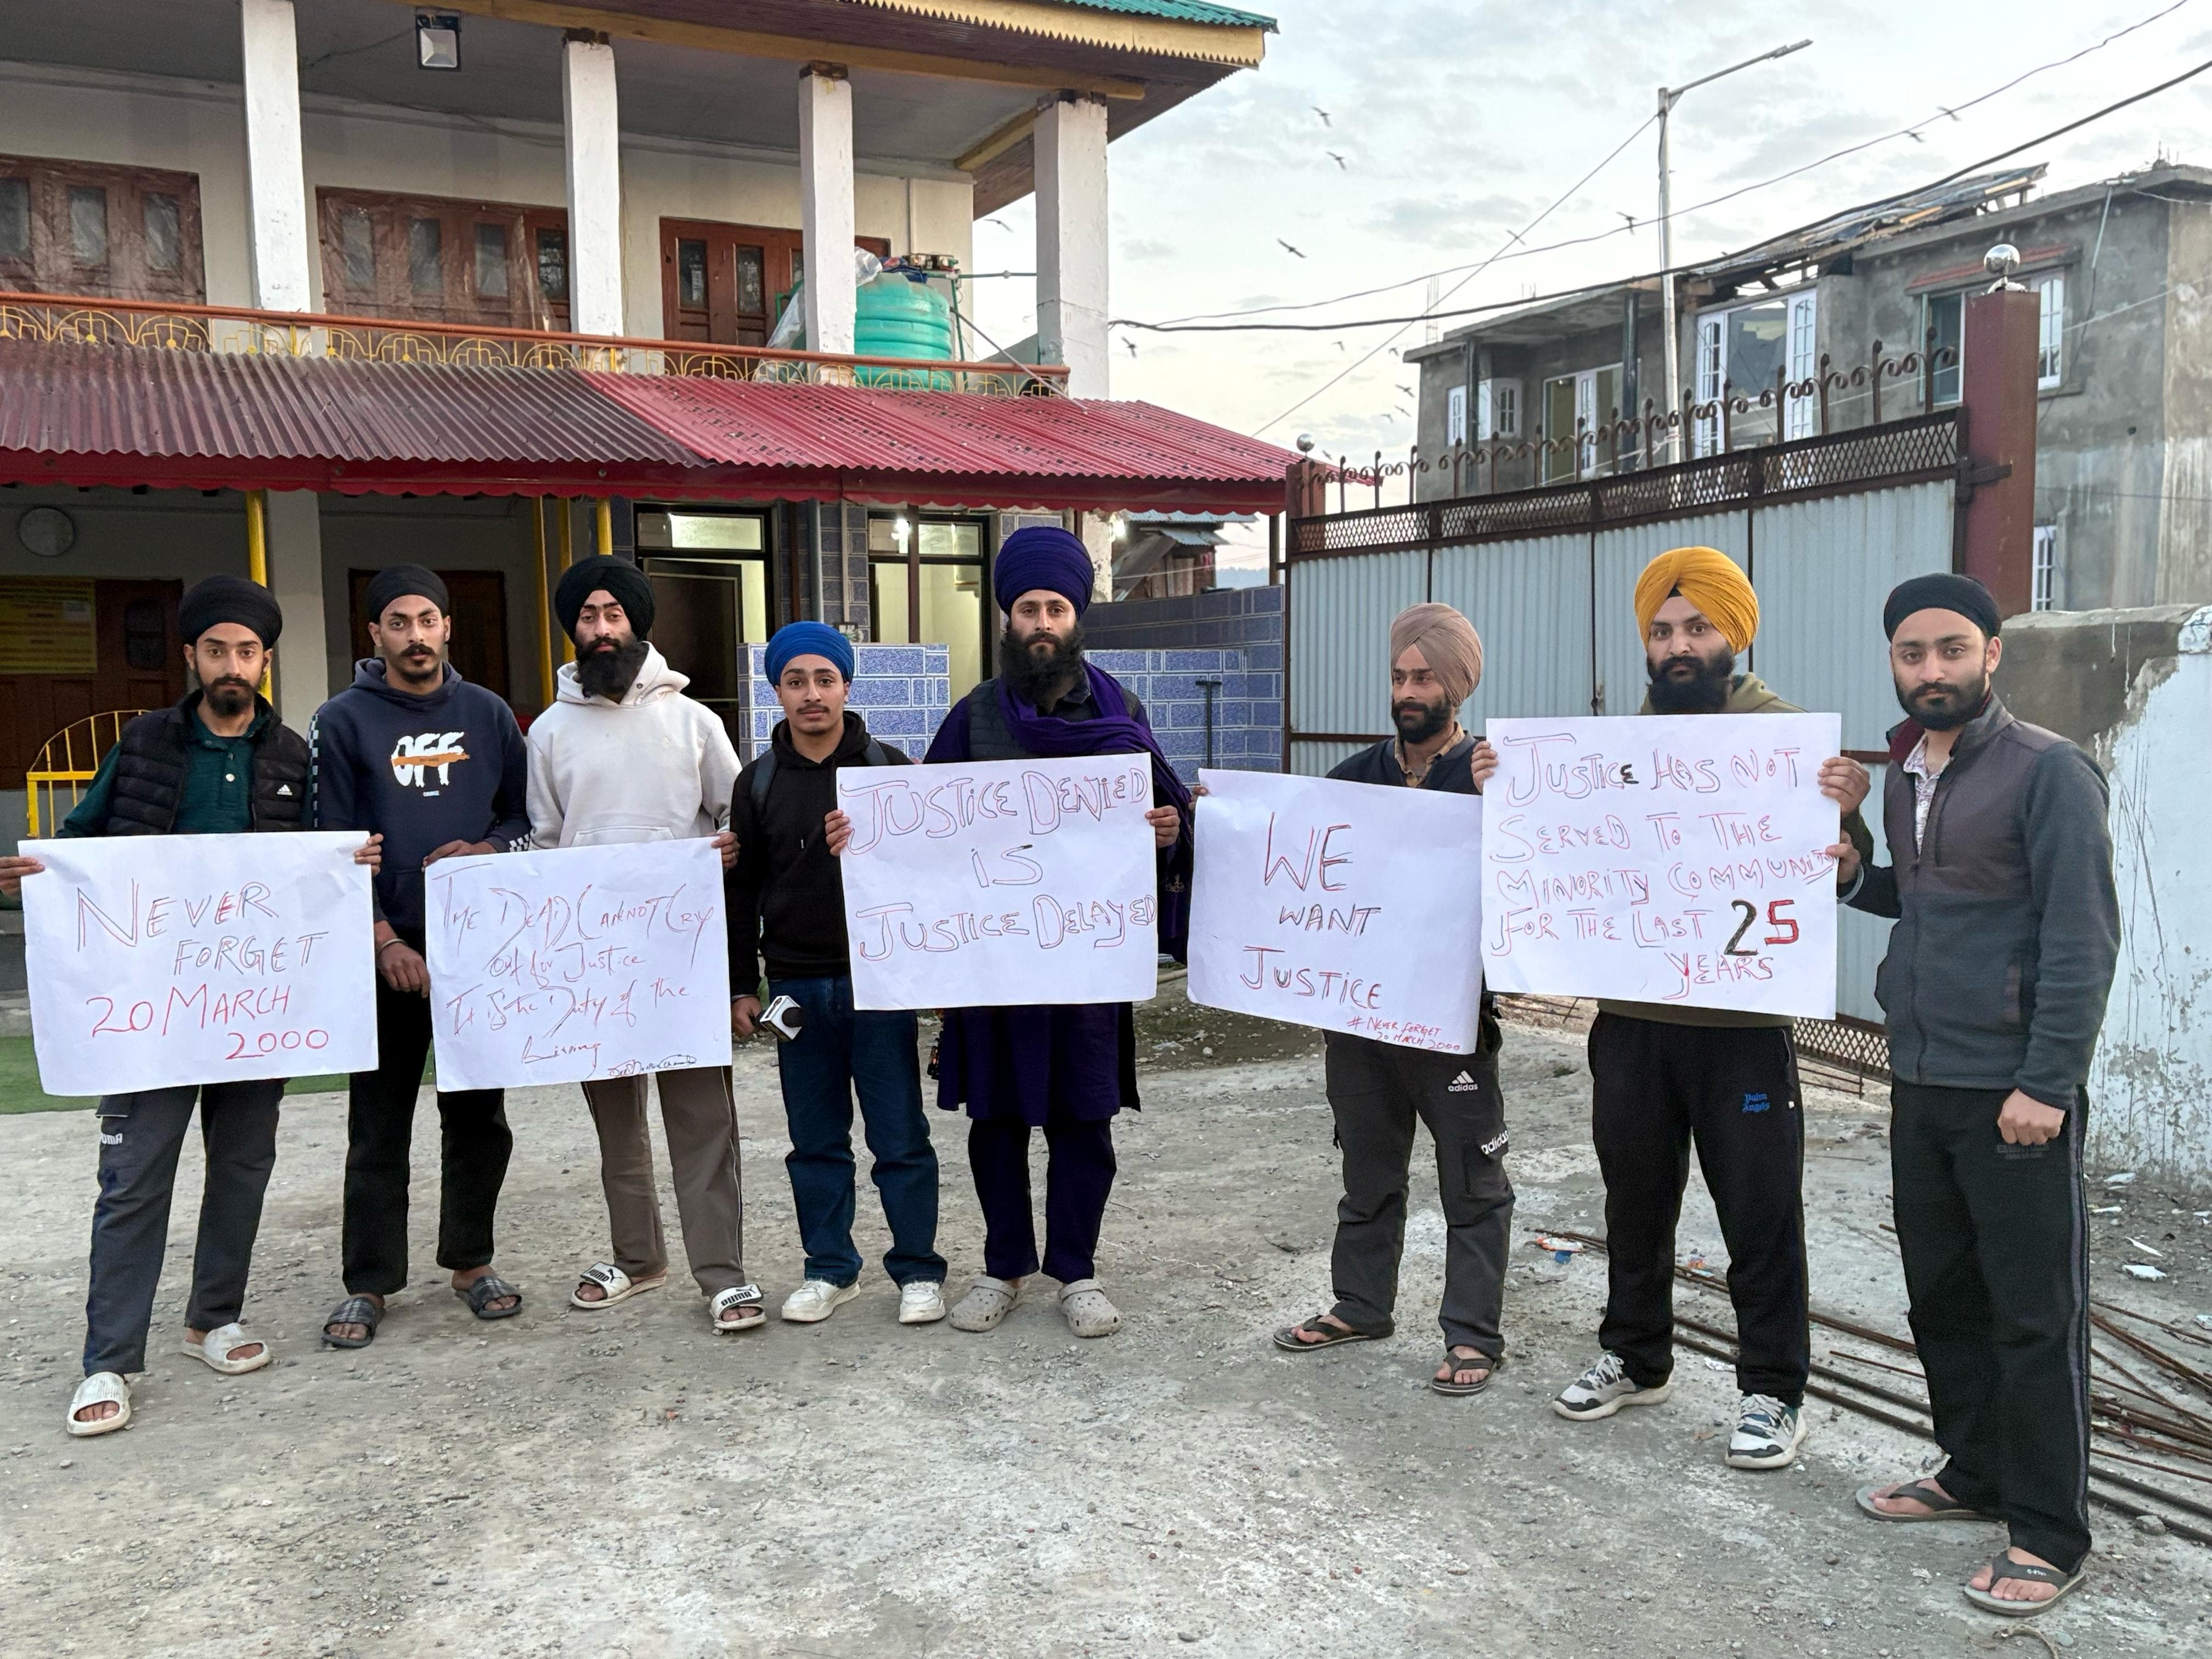 NEVER
FORGET
20 MARCH
2000
THE DEAD CANNOT CRY
out for Justice
It is the Duty of the
Living
JUSTICE DENIED
IS
JUSTICE DELAYED
WE
WANT
JUSTICE
# NEVER FORGET
20 MARCH 2000
JUSTICE HAS NOT
SERVED TO THE
MINORITY COMMUNITY
FOR THE LAST 25
YEARS
OFF
adidas
adidas
Palm
Angels
PUMA
PUMA